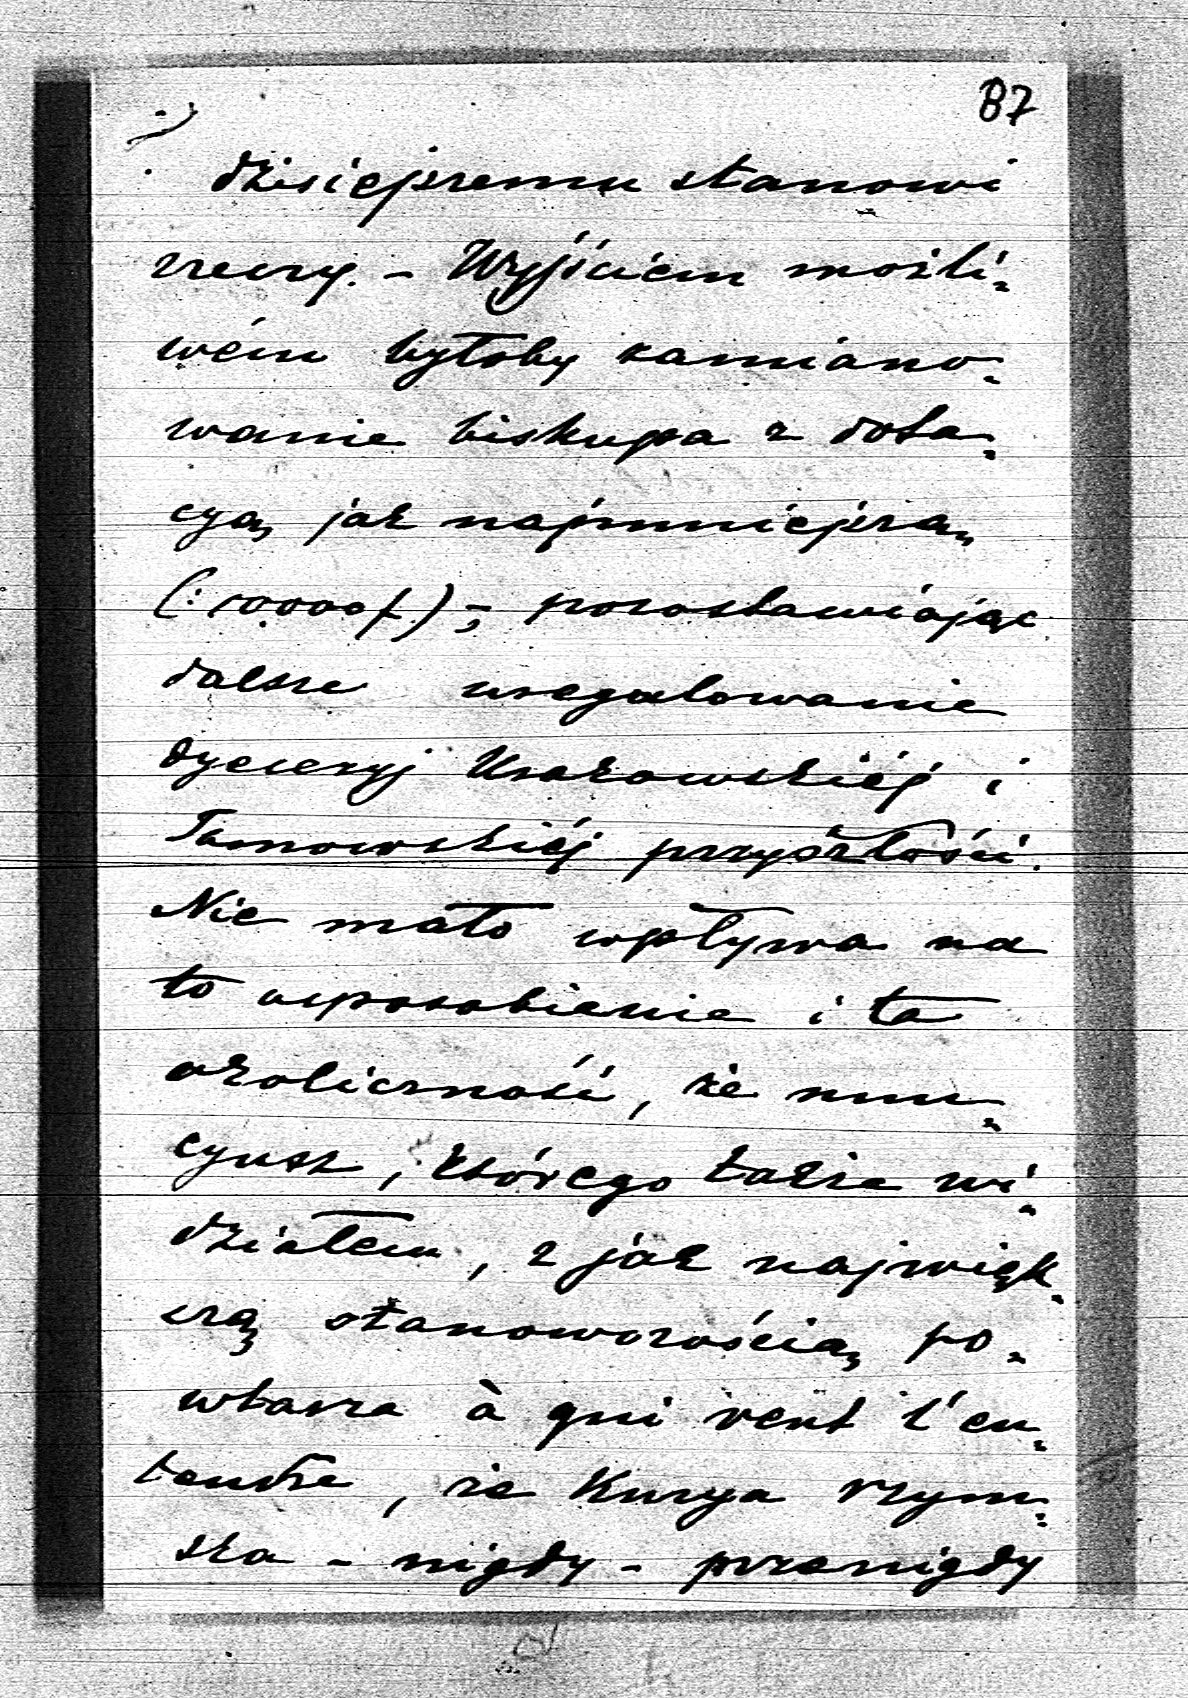 87
dzisiejszemu stanowi
rzeczy. – Wyjściem możli-
wém byłoby zamiano-
wanie biskupa z dota-
cyą jak najmniejszą
(: 10000 f.) -, pozostawiając
dalsze uregulowanie
dyecezyj Krakowskiéj i
Tarnowskiéj przyszłości.
Nie mało wpływa na
to usposobienie i ta
okoliczność, że nun-
cyusz, którego także wi-
działem, z jak najwięk-
szą stanowczością po-
wtarza à qui veut l'en-
tendre, że Kurya rzym-
ska – nigdy – przenigdy